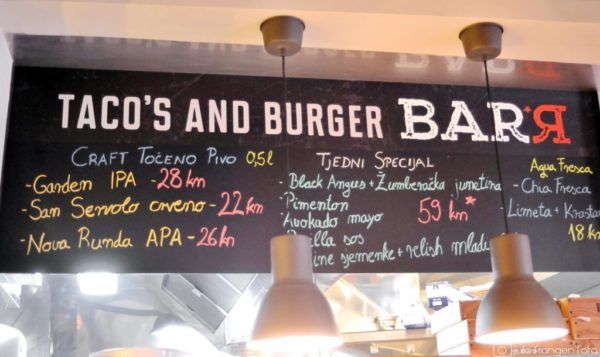 TACO'S AND BURGER BAR*R
CRAFT TOČENO PIVO 0,5l
- Garden IPA - 28 kn
- San Servolo crveno - 22 kn
- Nova Runda APA - 26 kn
TJEDNI SPECIJAL
- Black Angus + Žumberačka junetina
Pimenton
Avokado mayo
59 kn*
sos
sjemenke + relish
Agua Fresca
- Chia Fresca
Limeta +
18 kn